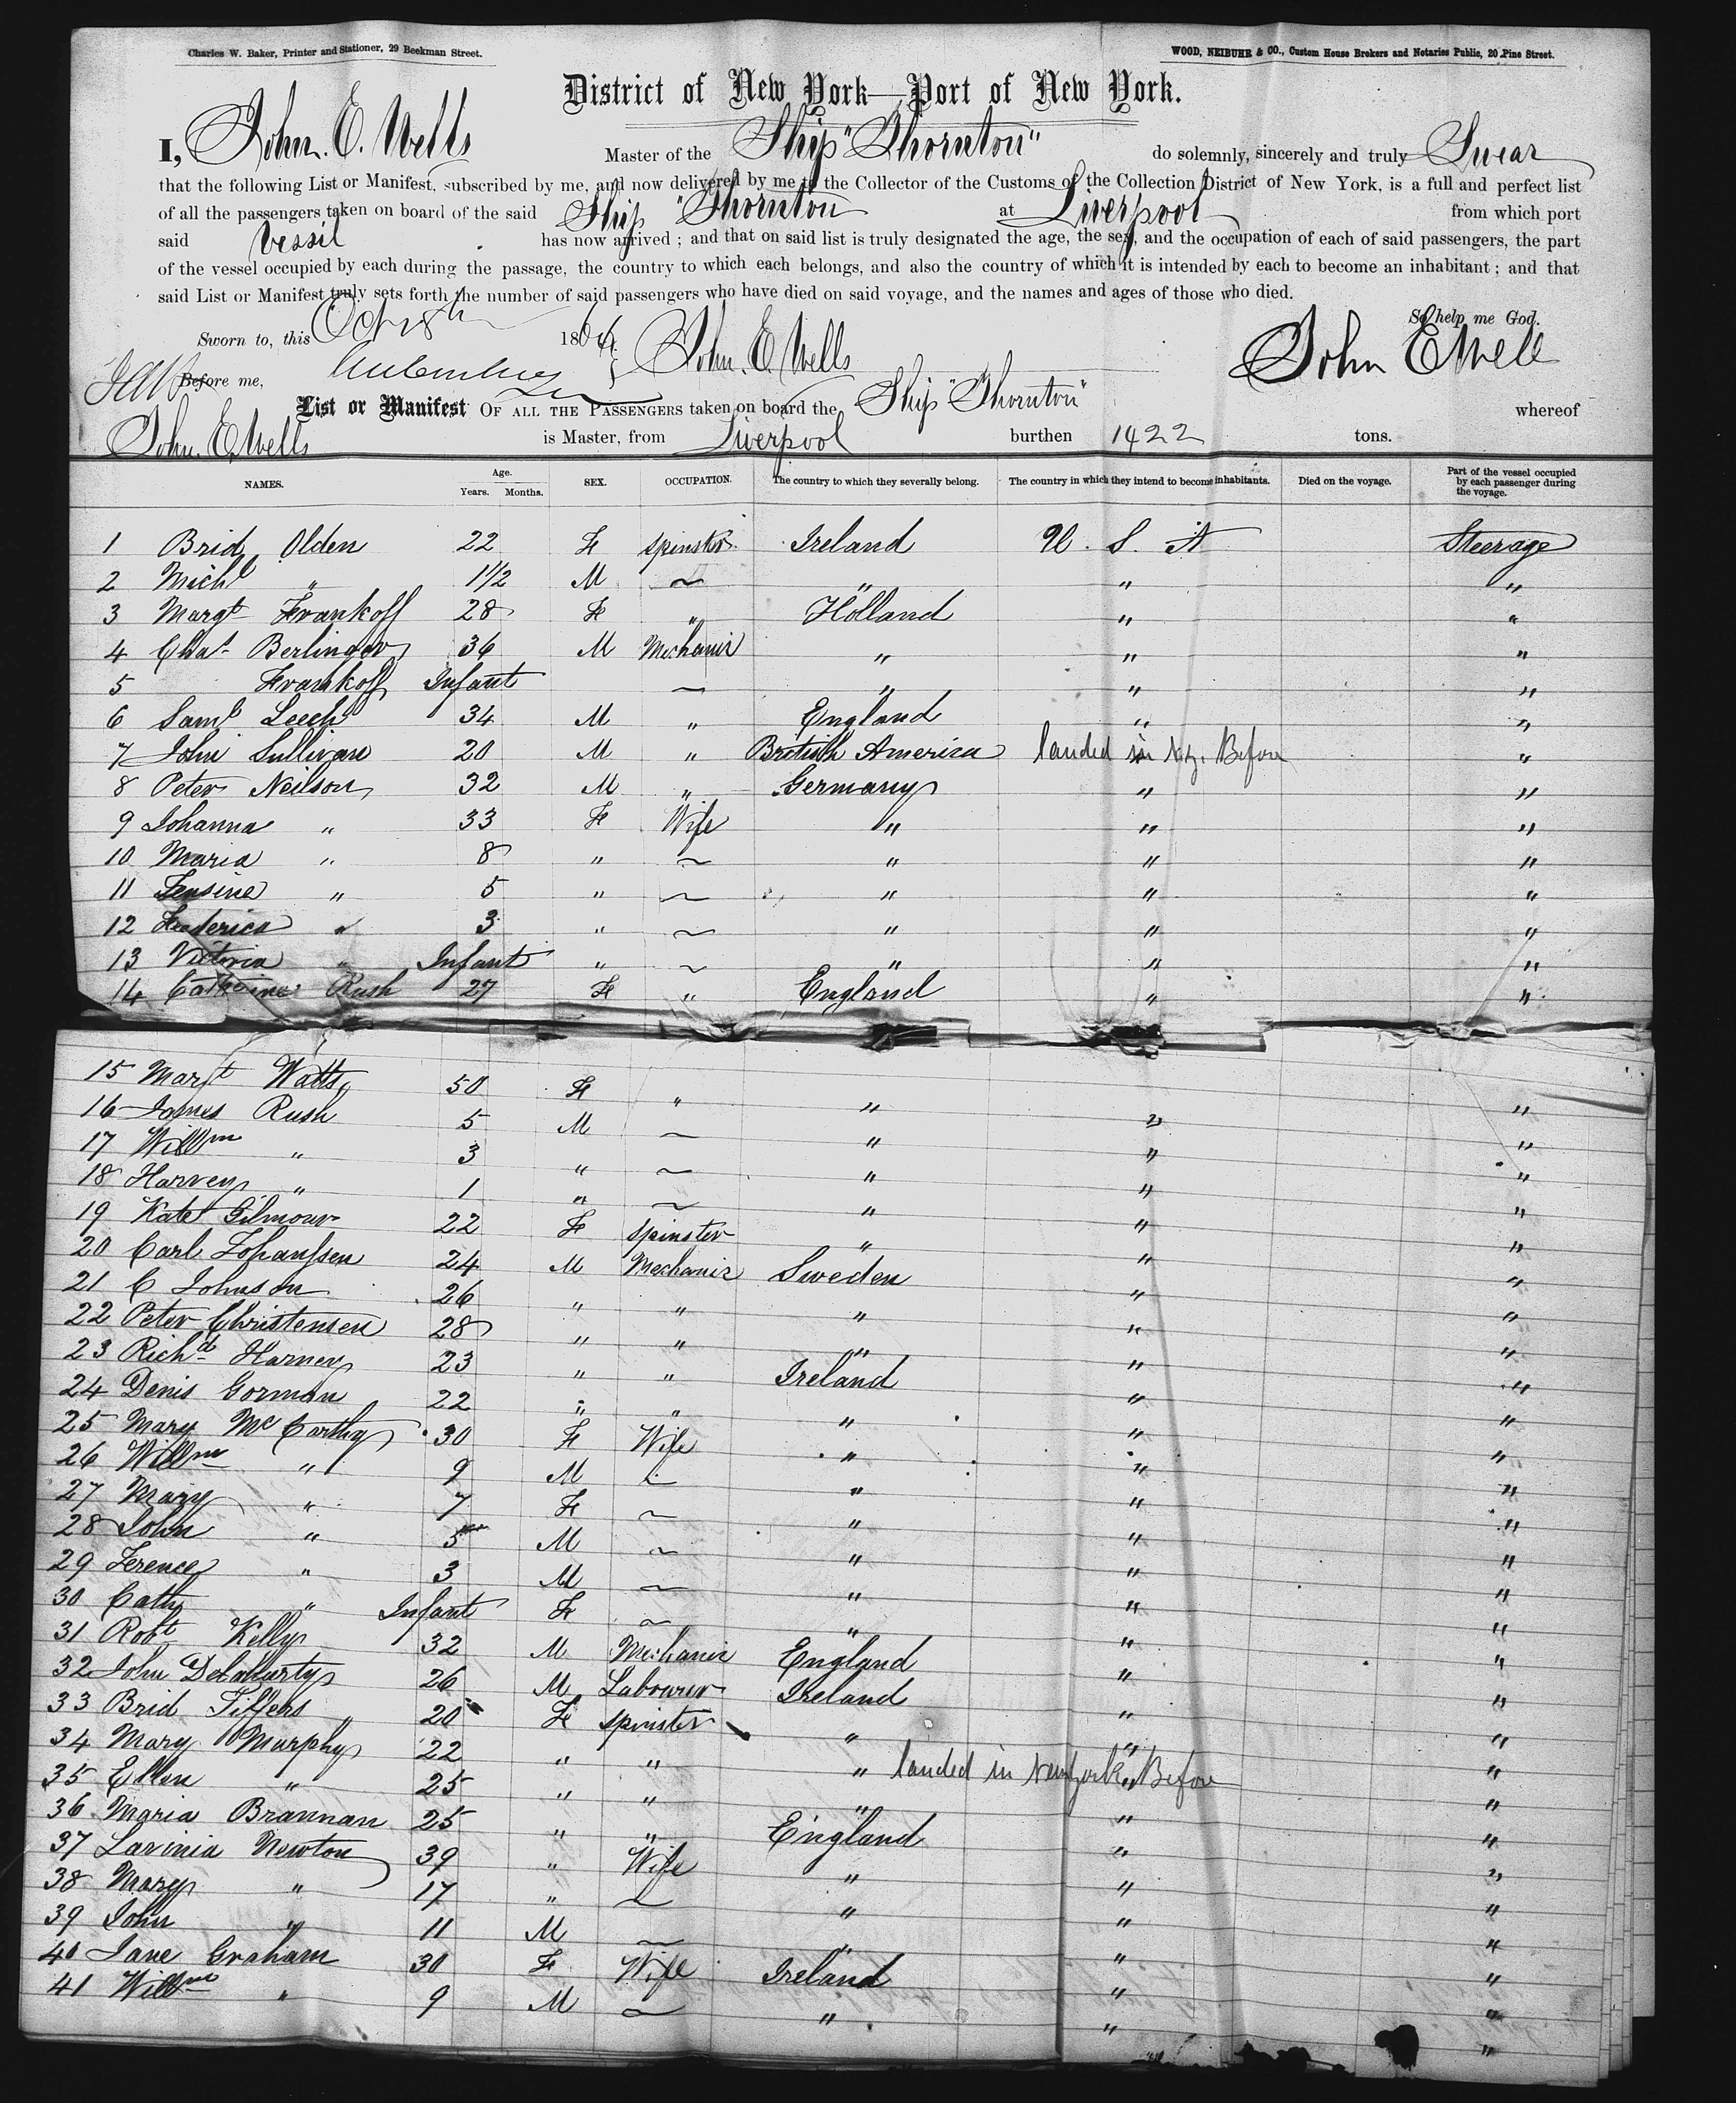 Charles W. Baker, Printer and Stationer, 29 Beekman Street.
WOOD, NEIBUHR & CO., Custom House Brokers and Notaries Public, 20 Pine Street.
District of New York—Port of New York.
I, John. E. Wells Master of the Ship "Thornton" do solemnly, sincerely and truly Swear
that the following List or Manifest, subscribed by me, and now delivered by me to the Collector of the Customs of the Collection District of New York, is a full and perfect list
of all the passengers taken on board of the said Ship "Thornton at Liverpool from which port
said Vessil has now arrived; and that on said list is truly designated the age, the sex, and the occupation of each of said passengers, the part
of the vessel occupied by each during the passage, the country to which each belongs, and also the country of which it is intended by each to become an inhabitant; and that
said List or Manifest truly sets forth the number of said passengers who have died on said voyage, and the names and ages of those who died.
So help me God.
Sworn to, this Oct 18th 1864 John. E. Wells John E Wells
Before me,
List or Manifest OF ALL THE PASSENGERS taken on board the Ship "Thornton" whereof
John. E. Wells is Master, from Liverpool burthen 1422 tons.
NAMES. Age. Years. Months. SEX. OCCUPATION. The country to which they severally belong. The country in which they intend to become inhabitants. Died on the voyage. Part of the vessel occupied by each passenger during the voyage.
1 Brid Olden 22 F spinster Ireland U. S. A Steerage
2 Michl " 1 1/2 M ~ " " "
3 Margt Frankoff 28 F " Holland " "
4 Chas Berlinger 36 M Mechanic " " "
5 Frankoff Infant — " " "
6 Saml Leech 34 M " England " "
7 John Sullivan 20 M " British America landed in N.Y. Before "
8 Peter Neilson 32 M " Germany " "
9 Johanna " 33 F Wife " " "
10 Maria " 8 " ~ " " "
11 Jensine " 5 " ~ " " "
12 Frederica " 3 " ~ " " "
13 Victoria " Infant " ~ " " "
14 Catherine Rush 27 F " England " "
15 Margt Watts 50 F " " " "
16 James Rush 5 M ~ " " "
17 Willm " 3 " ~ " " "
18 Harvey " 1 " ~ " " "
19 Kate Gilmour 22 F spinster " " "
20 Carl Johanssen 24 M Mechanic Sweden " "
21 C Johnson 26 " " " " "
22 Peter Christensen 28 " " " " "
23 Richd Harney 23 " " Ireland " "
24 Denis Gorman 22 " " " " "
25 Mary McCarthy 30 F Wife " " "
26 Willm " 9 M ~ " " "
27 Mary " 7 F ~ " " "
28 John " 5 M ~ " " "
29 Terence " 3 M ~ " " "
30 Cath " Infant F ~ " " "
31 Robt Kelly 32 M Mechanic England " "
32 John Delahurty 26 M Labourer Ireland " "
33 Brid 20 F spinster " " "
34 Mary Murphy 22 " " " landed in New York Before "
35 Ellen " 25 " " " " "
36 Maria Brannan 25 " " England " "
37 Lavinia Newton 39 " Wife " " "
38 Mary " 17 " ~ " " "
39 John " 11 M ~ " " "
40 Jane Graham 30 F Wife Ireland " "
41 Willm " 9 M ~ " " "